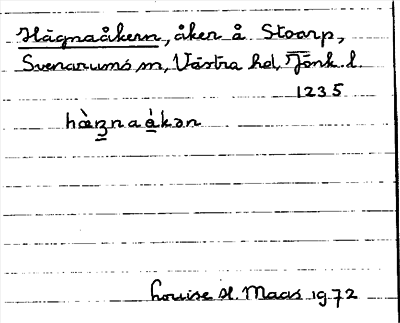 Hägnaåkern, åker å Stoarp,
Svenarums sn, Västra hd, Jönk. l.
1235
hæ̀ŋnaå̀kən
Louise H. Maas 1972